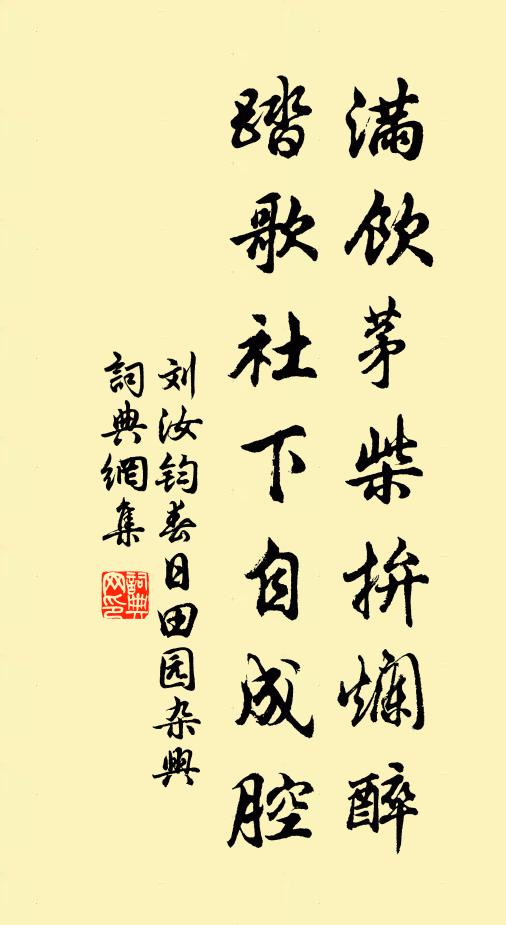 满饮茅柴拚烂醉
踏歌社下自成腔
刘汝钧春日田园杂興
詞典網集
詞典网印